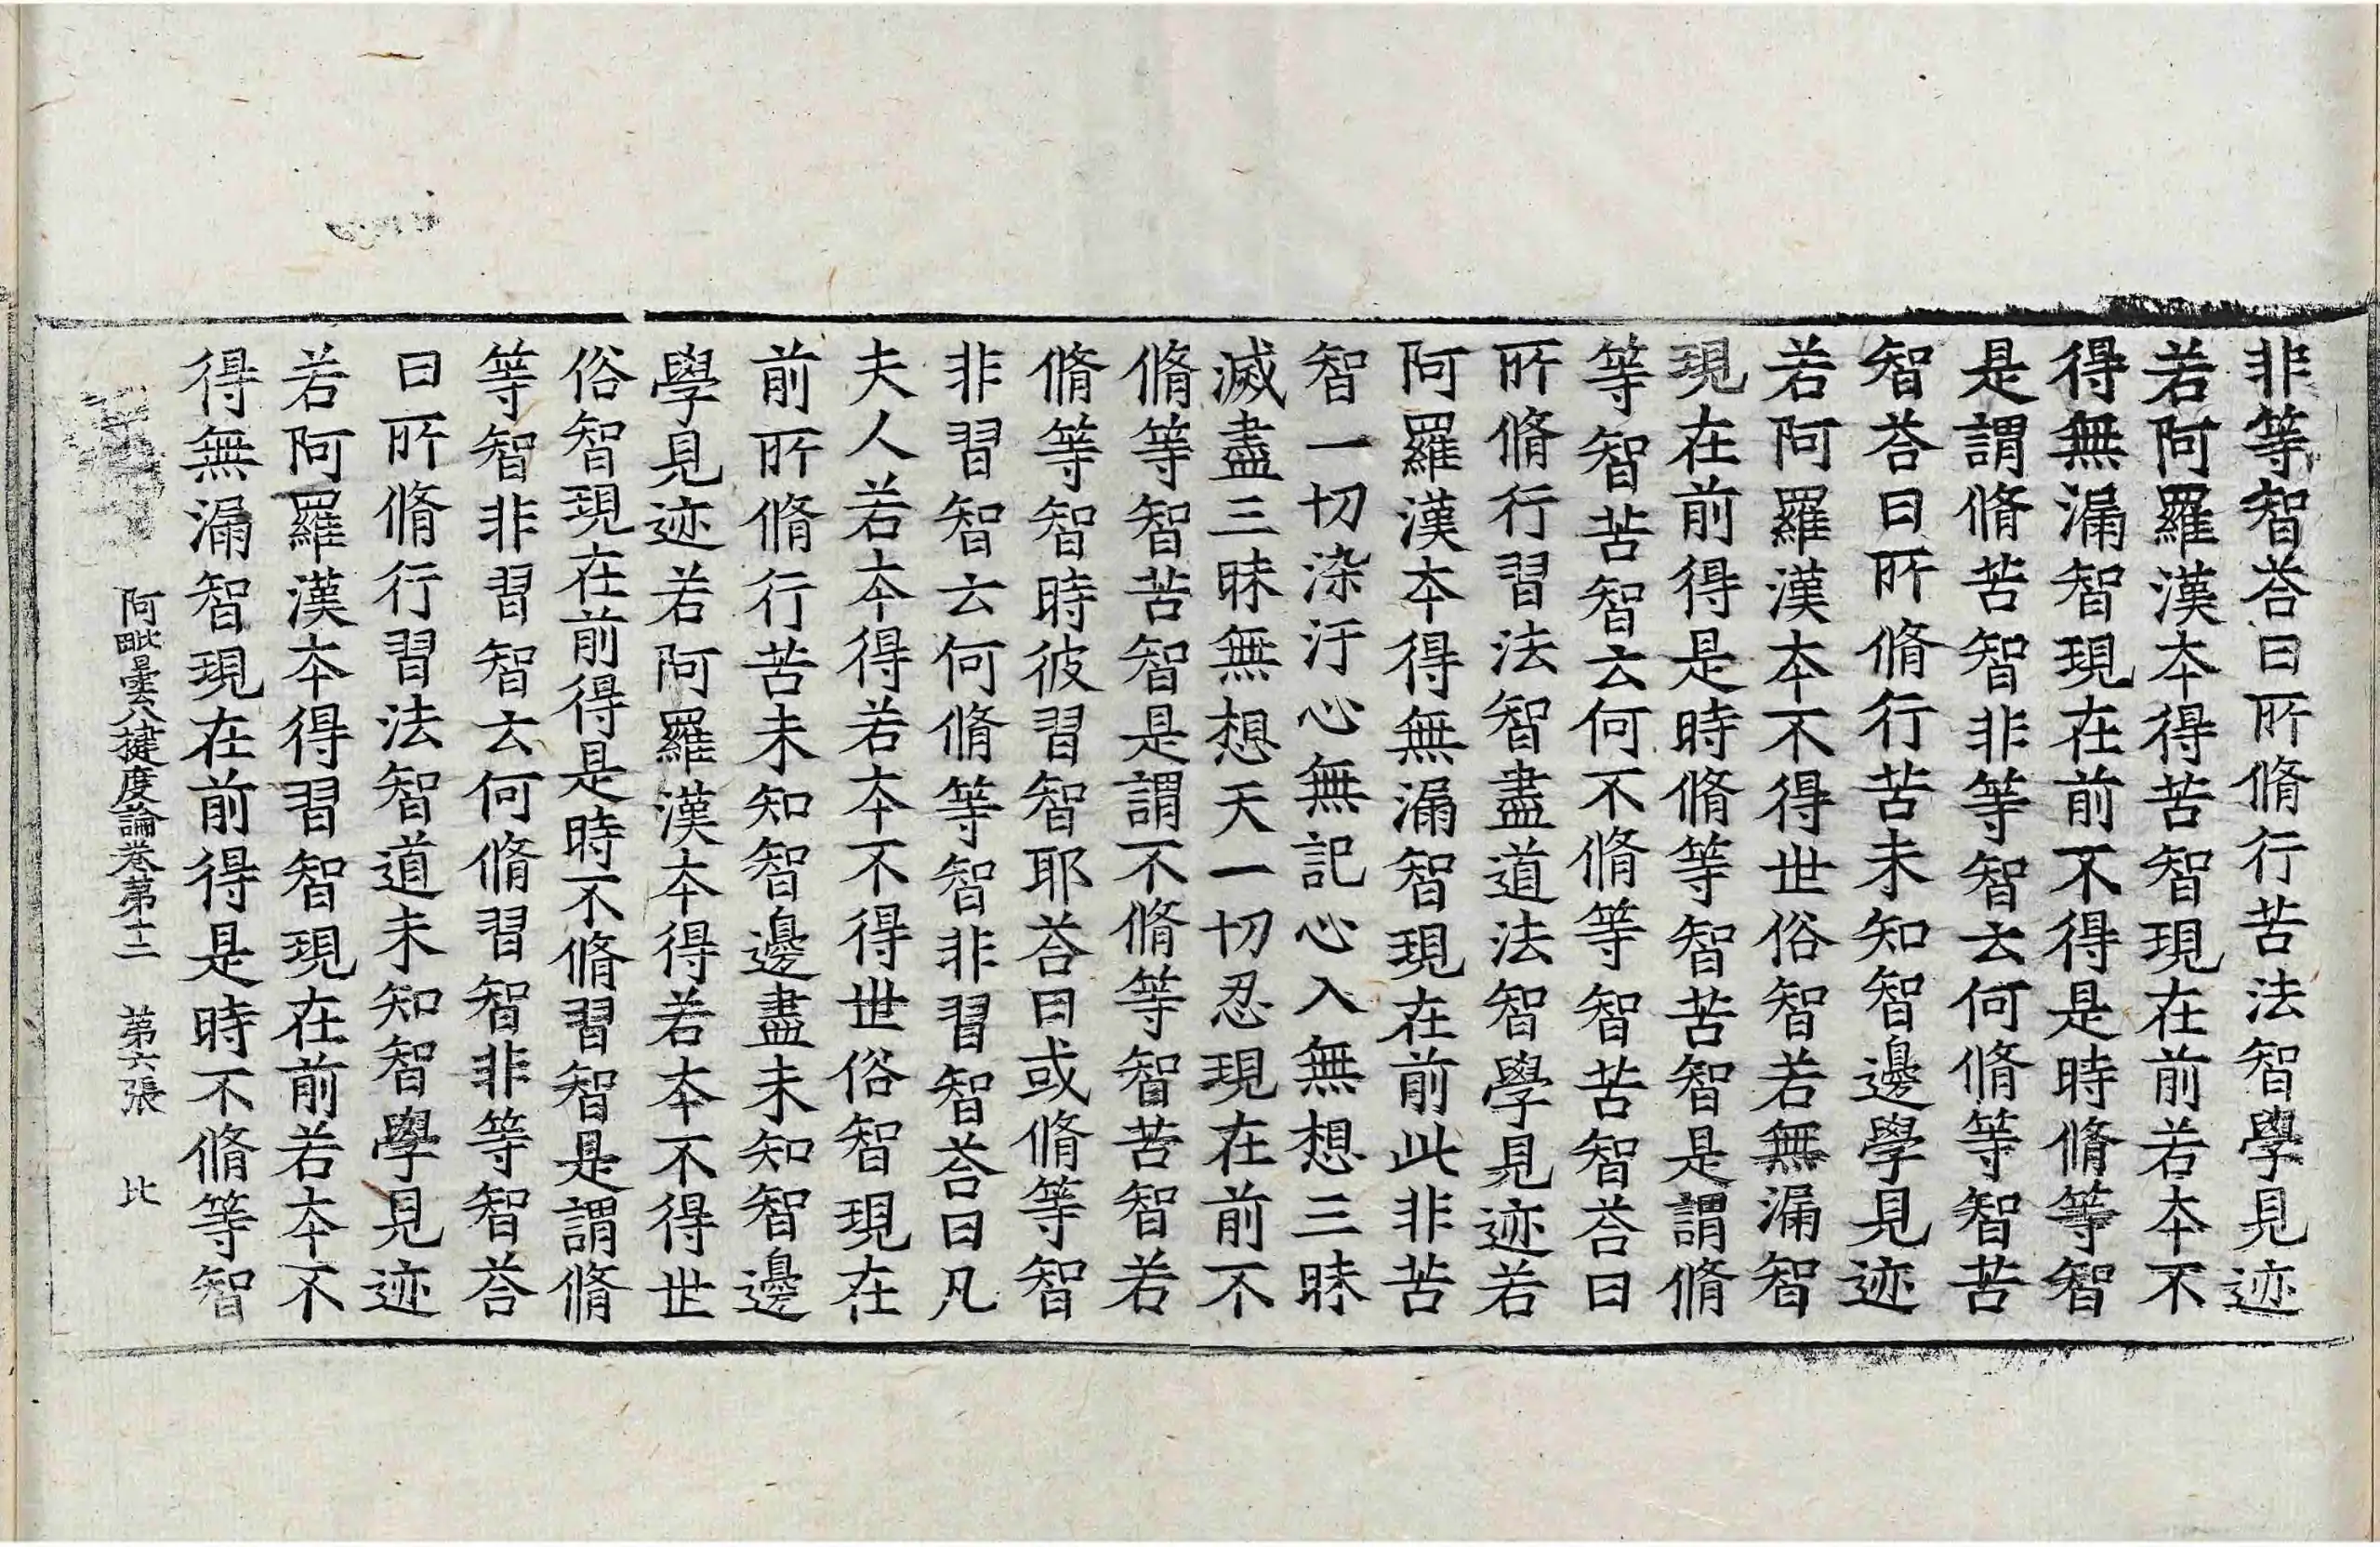 非等智荅曰所脩行苦法智學見迹
若阿羅漢本得苦智現在前若本不
得無漏智現在前不得是時脩等智
是謂脩苦智非等智云何脩等智苦
智荅曰所脩行苦未知智邊學見迹
若阿羅漢本不得世俗智若無漏智
現在前得是時脩等智苦智是謂脩
等智苦智云何不脩等智苦智荅曰
所脩行習法智盡道法智學見迹若
阿羅漢本得無漏智現在前此非苦
智一切染汙心無記心入無想三昧
滅盡三昧無想天一切忍現在前不
脩等智苦智是謂不脩等智苦智若
脩等智時彼習智耶荅曰或脩等智
非習智云何脩等智非習智荅曰凡
夫人若本得若本不得世俗智現在
前所脩行苦未知智邊盡未知智邊
學見迹若阿羅漢本得若本不得世
俗智現在前得是時不脩習智是謂脩
等智非習智云何脩習智非等智荅
曰所脩行習法智道未知智學見迹
若阿羅漢本得習智現在前若本不
得無漏智現在前得是時不脩等智
阿毗曇八揵度論卷第十二 第六張 比